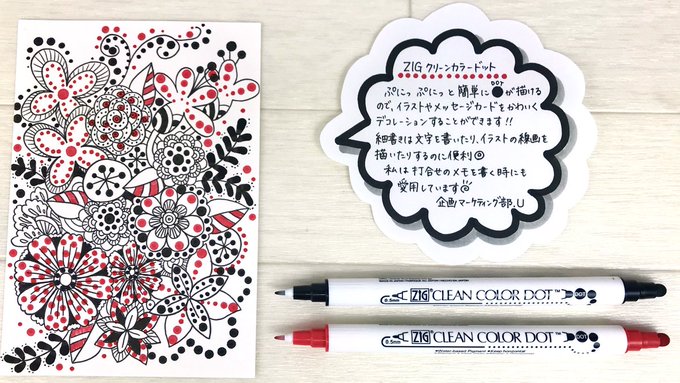 ZIG クリーンカラードット
ぷにっ ぷにっと 簡単に●が描ける
DOT
ので、イラストやメッセージカードをかわいく
デコレーションすることができます!!
細書きは文字を書いたり、イラストの線画を
描いたりするのに便利
私は打合せのメモを書く時にも
愛用しています
企画マーケティング部.U
0.5mm ZIG CLEAN COLOR DOT™ DOT
0.5mm ZIG CLEAN COLOR DOT™ DOT